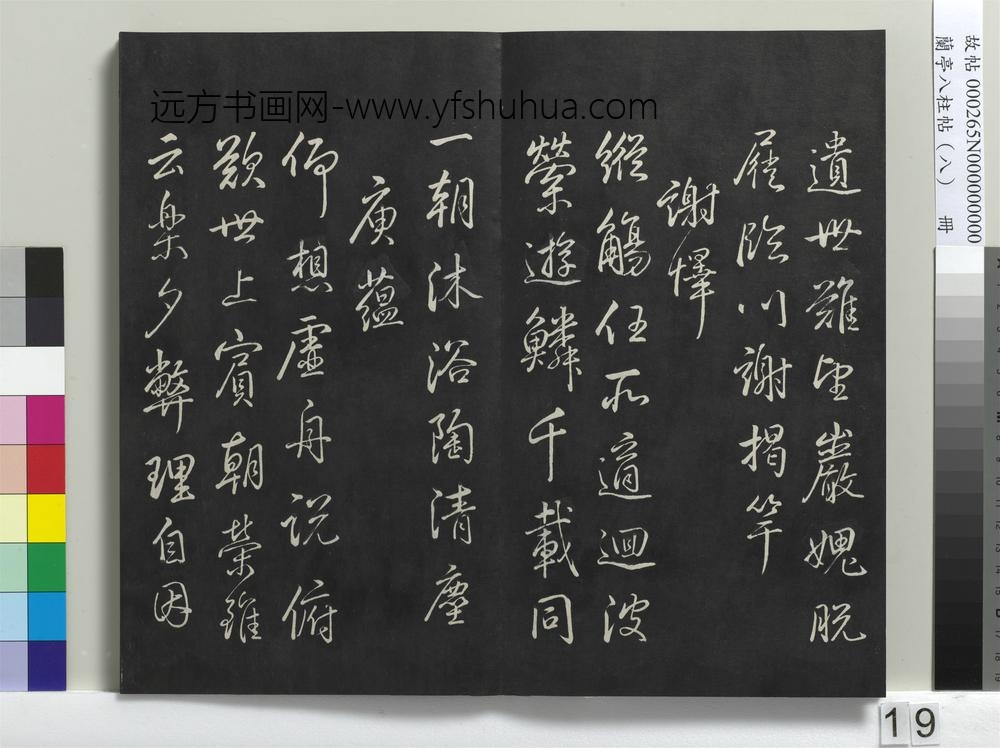 遺世難望巖媿脫
屣臨川謝揭竿
謝懌
縱觴任所適迴波
縈遊鱗千載同
一朝沐浴陶清塵
庾蘊
仰想虛舟說俯
歎世上賓朝榮雖
云樂夕弊理自因
远方书画网-www.yfshuhua.com
故帖 000265N000000000
蘭亭八柱帖（八） 冊
19